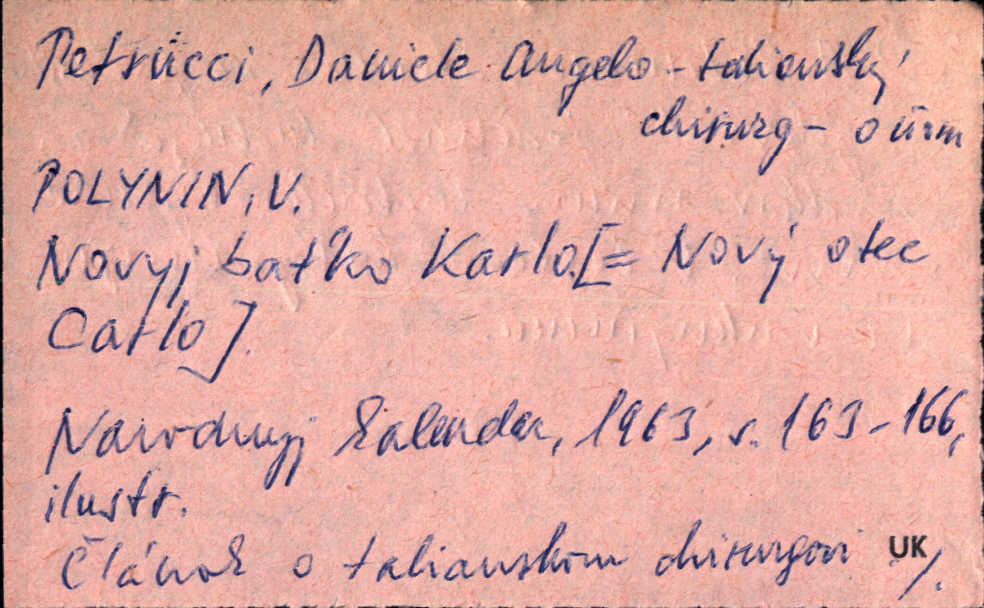 Petrucci, Daniele Angelo - taliansky
chirurg - o ňom
POLYNIN, V.
Novyj baťko Karlo. [= Nový otec
Carlo].
Narodnyj kalendar, 1963, s. 163-166,
ilustr.
Článok o talianskom chirurgovi UK